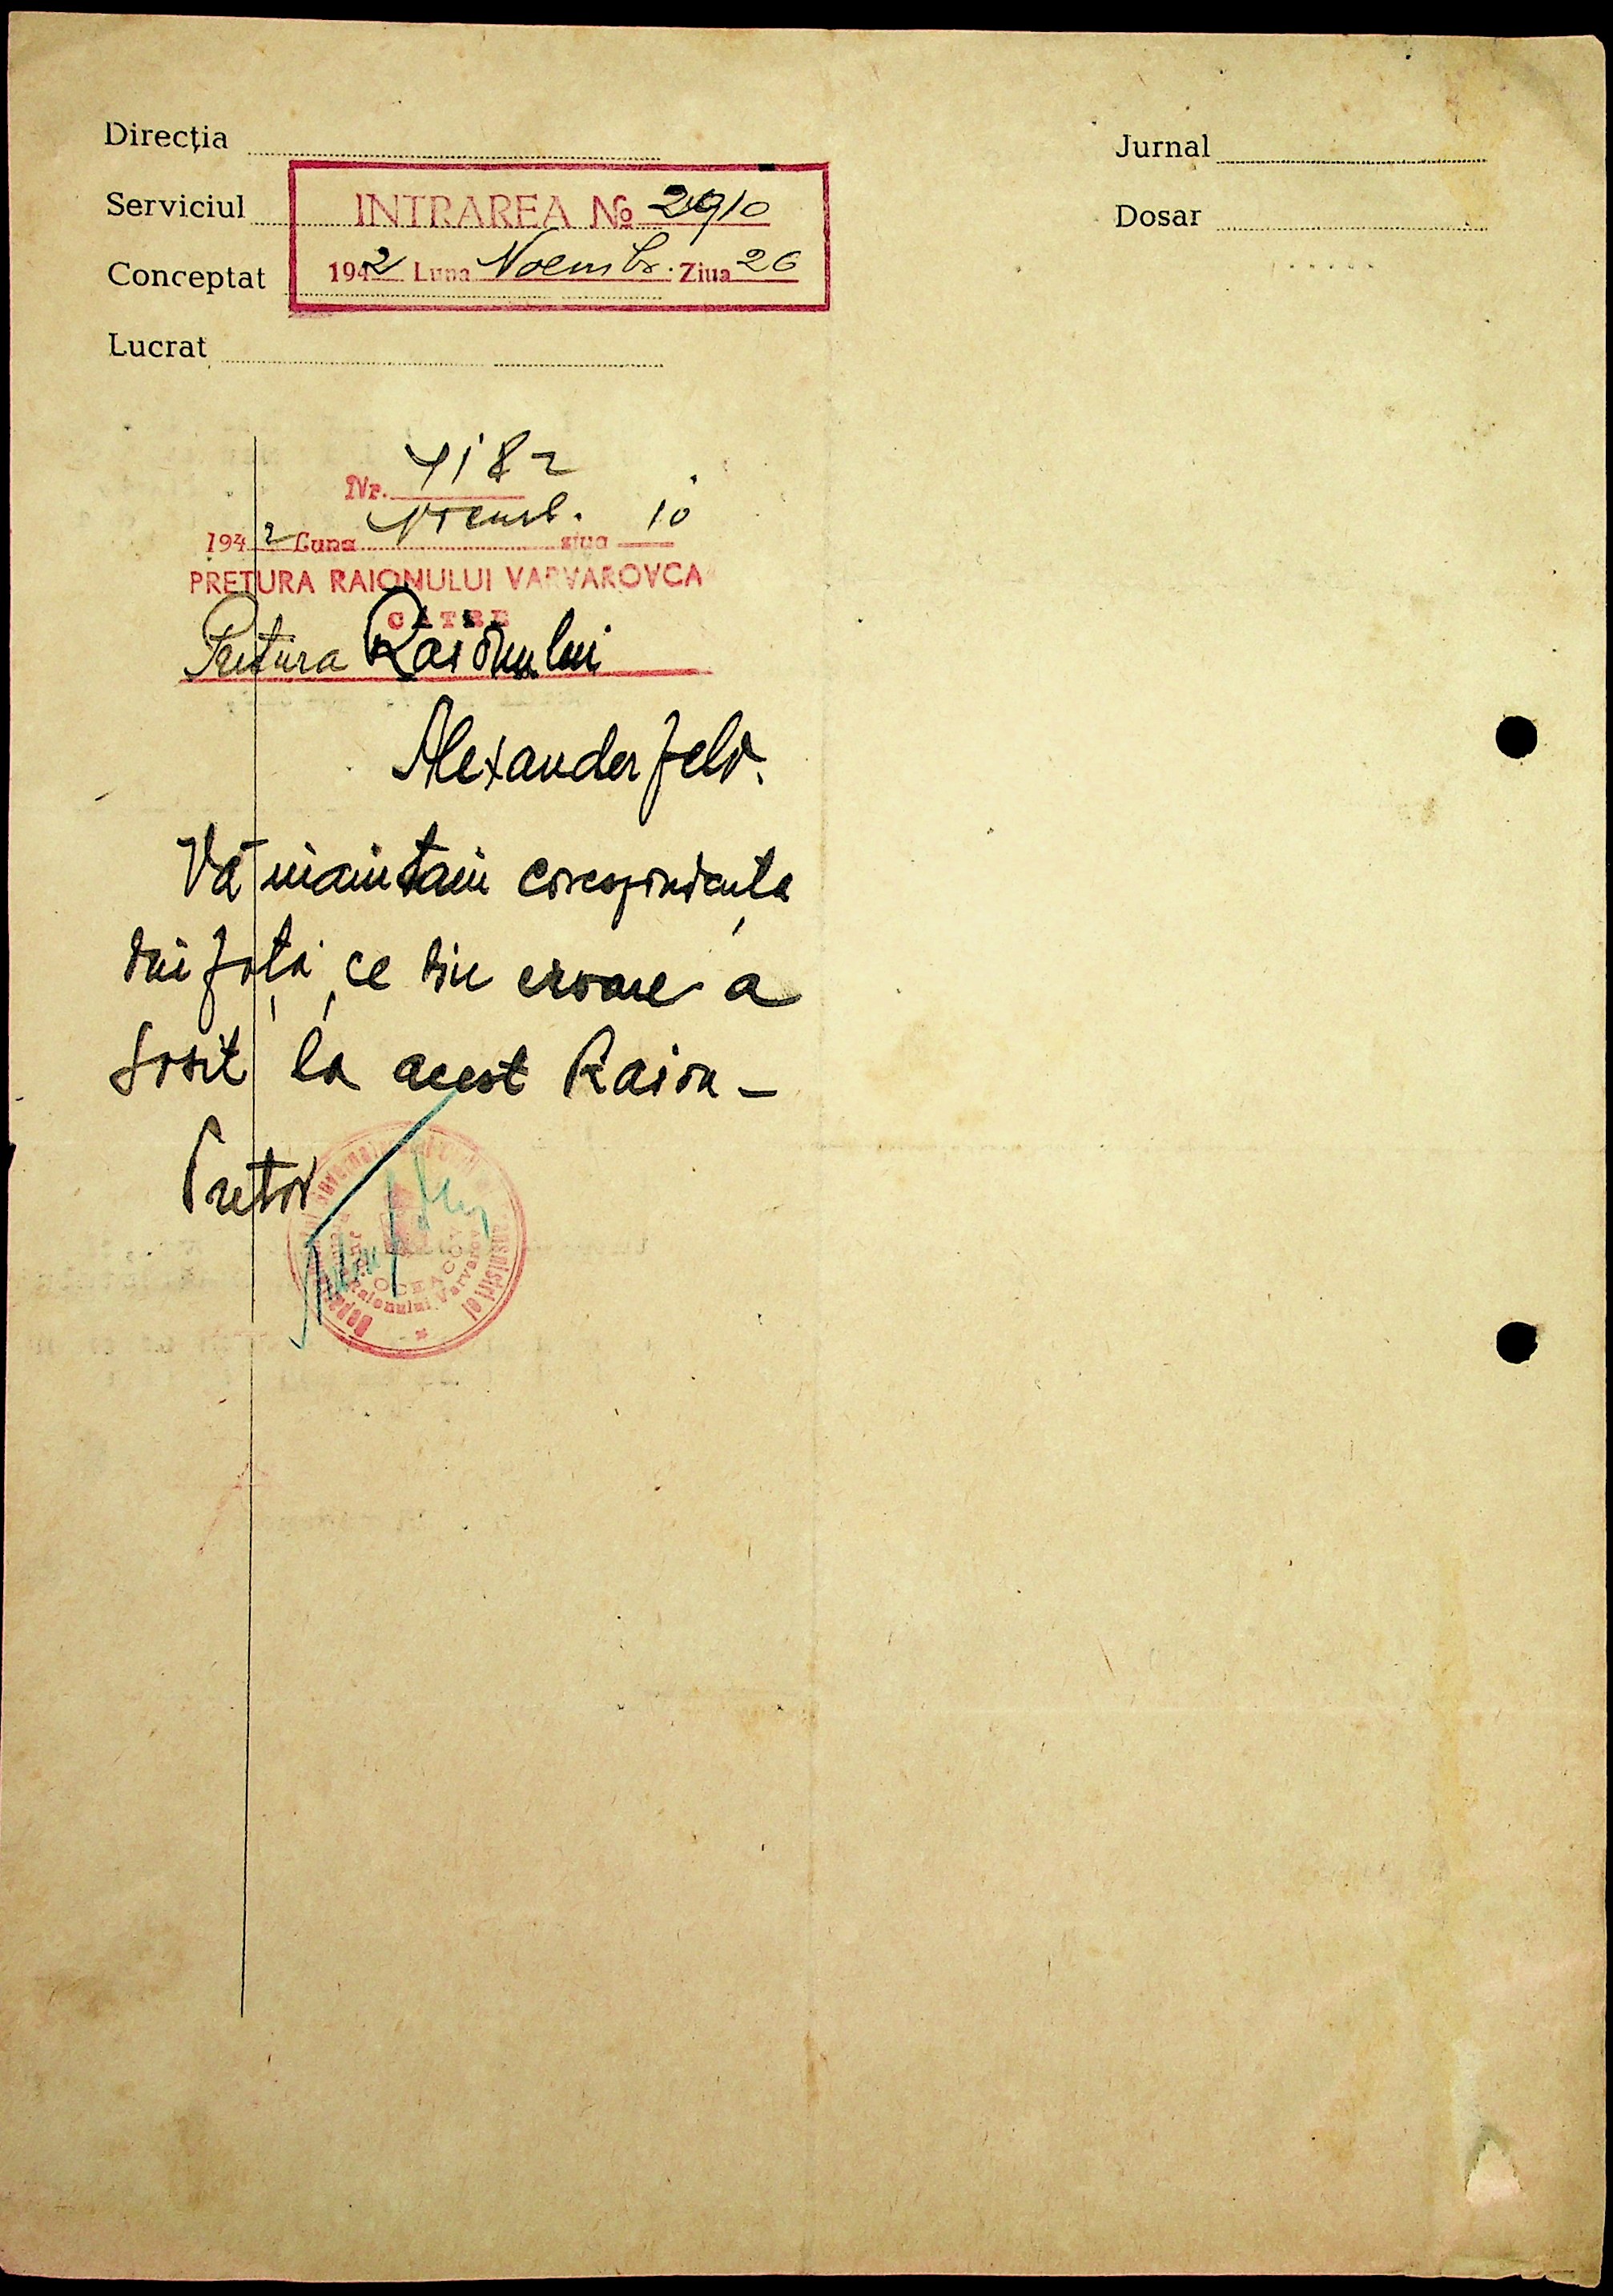 Direcția
Jurnal
Serviciul
INTRAREA No 2910
Dosar
Conceptat
1942 Luna Noembr. Ziua 26
Lucrat
Nr. 4182
1942 Luna Noemb. ziua 10
PRETURA RAIONULUI VARVAROVCA
CATRE
Pretura Raionului
Alexanderfeld.
Vă inaintam corespondența
din fața, ce din eroare a
sosit la acest Raion —
Pretor
Raionului Varvarov
OCEACOV